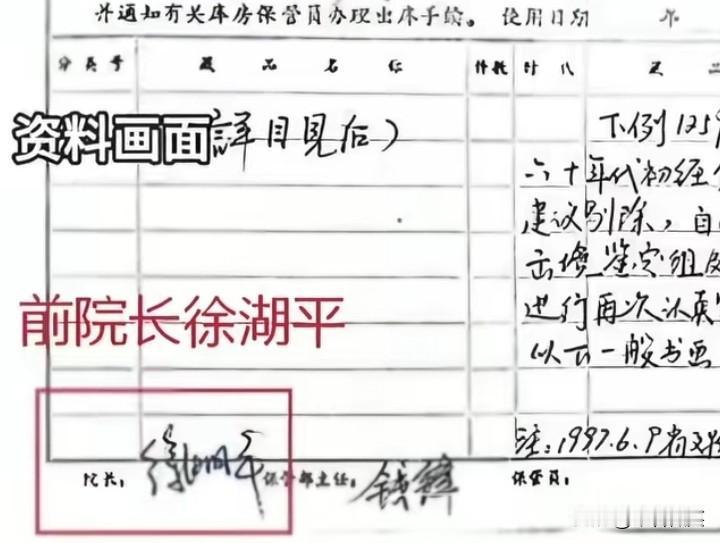 并通知有关库房保管员办理出库手续。 使用日期 年
分类号 藏品名称 件数 时代
资料画面
詳目見后）
下例125
六十年代初经
建议剔除，自
去堆鉴定组
进行再次认真
以云一般书画
前院长徐湖平
注：1997.6.9省文
院长： 徐湖平 保管部主任： 钱锋 保管员：